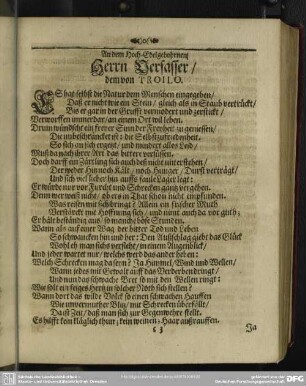 An dem Hoch-Edelgebohrnen
Herrn Verfasser/
dem von TROILO.
ES hat selbst die Natur dem Menschen eingegeben/
Daß er nicht wie ein Stein/ gleich als in Staub verdrückt/
Bis er gar in der Grufft vermodert und zerstückt/
Verworffen immerdar an einem Ort wil leben.
Drum wündscht ein freyer Sinn der Freyheit zu geniessen/
Die unbeschränckt ist: da der Selbstzufriedenheit.
So sich an sich ergetzt/ und mindert alles Leid/
Muß da nach ihrer Art das bitter versüssen.
Doch darff ein Zärtling sich auch diß nicht unterstehen/
Der weder Hin noch Kält/ noch Hunger/ Durst verträgt/
Und sich viel lieber hin auffs faule Lager legt:
Er würde nur vor Furcht und Schrecken gantz vergehen.
Denn wer weiß nicht/ ob er in That schon nicht empfunden.
Was reisen mit sich bringt? Allein ein frischer Muth
Verstärckt mit Hoffnung sich/ und nimt auch da vor gut;
Er hält beständig aus/ so manche böse Stunden.
Wann als auf einer Wag der bitter Tod und Leben
So schwancken hin und her: Den Ausschlag giebt das Glück
Wohl eh man sichs versieht/ in einem Augenblick/
Und jeder wartet nur/ welchs werd das ander heben:
Welch Schrecken mag da seyn? Ja Himmel/ Wind und Wellen/
Wann jedes mit Gewalt auff das Verderben dringt/
Und nun das schwache Bret so mit den Wellen ringt:
Wie solt ein feiges Hertz in solcher Noth sich stellen?
Wann dort das wilde Volck so einen schwachen Hauffen
Wie unvermuther Blitz/ mit Schrecken überfällt/
Da ist Zeit/ daß man sich zur Gegenwehre stellt.
Es hilfft kein kläglich thun; kein weinen/ Haar außrauffen.
Ja